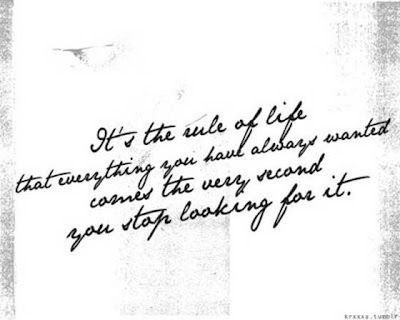 It's the rule of life
that everything you have always wanted
comes the very second
you stop looking for it.